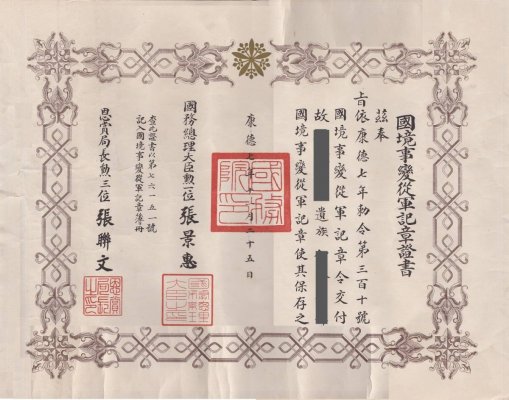 國境事變從軍記章證書
茲奉
旨依康德七年勅令第三百十號
國境事變從軍記章令交付
故 遺族
國境事變從軍記章使其保存之
康德七年 月二十五日
國務院印
國務總理大臣勲一位 張景惠
查此證書以第七六一五一號
記入國境事變從軍記章簿冊
恩賞局長勲三位 張聯文
恩賞局長之印